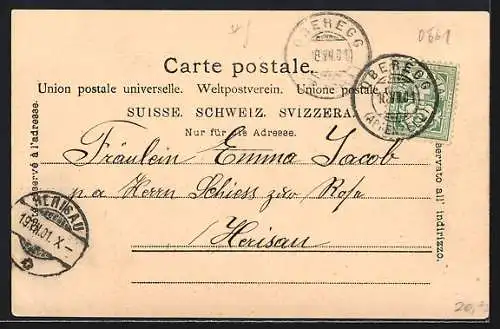 0661
OBEREGG
Carte postale.
OBEREGG
Union postale universelle. Weltpostverein. Unione postale
SUISSE. SCHWEIZ. SVIZZERA.
Nur für die Adresse.
réservé à l'adresse.
Fräulein Emma Jacob
p a Herrn Schiess zur Rose
Herisau
HERISAU
19.VII.01.X
all' indirizzo.